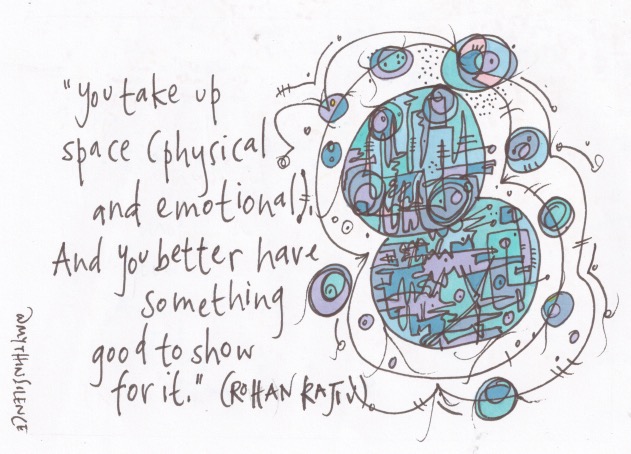 "You take up
space (physical
and emotional).
And you better have
something
good to show
for it." (ROHAN RAJIV)